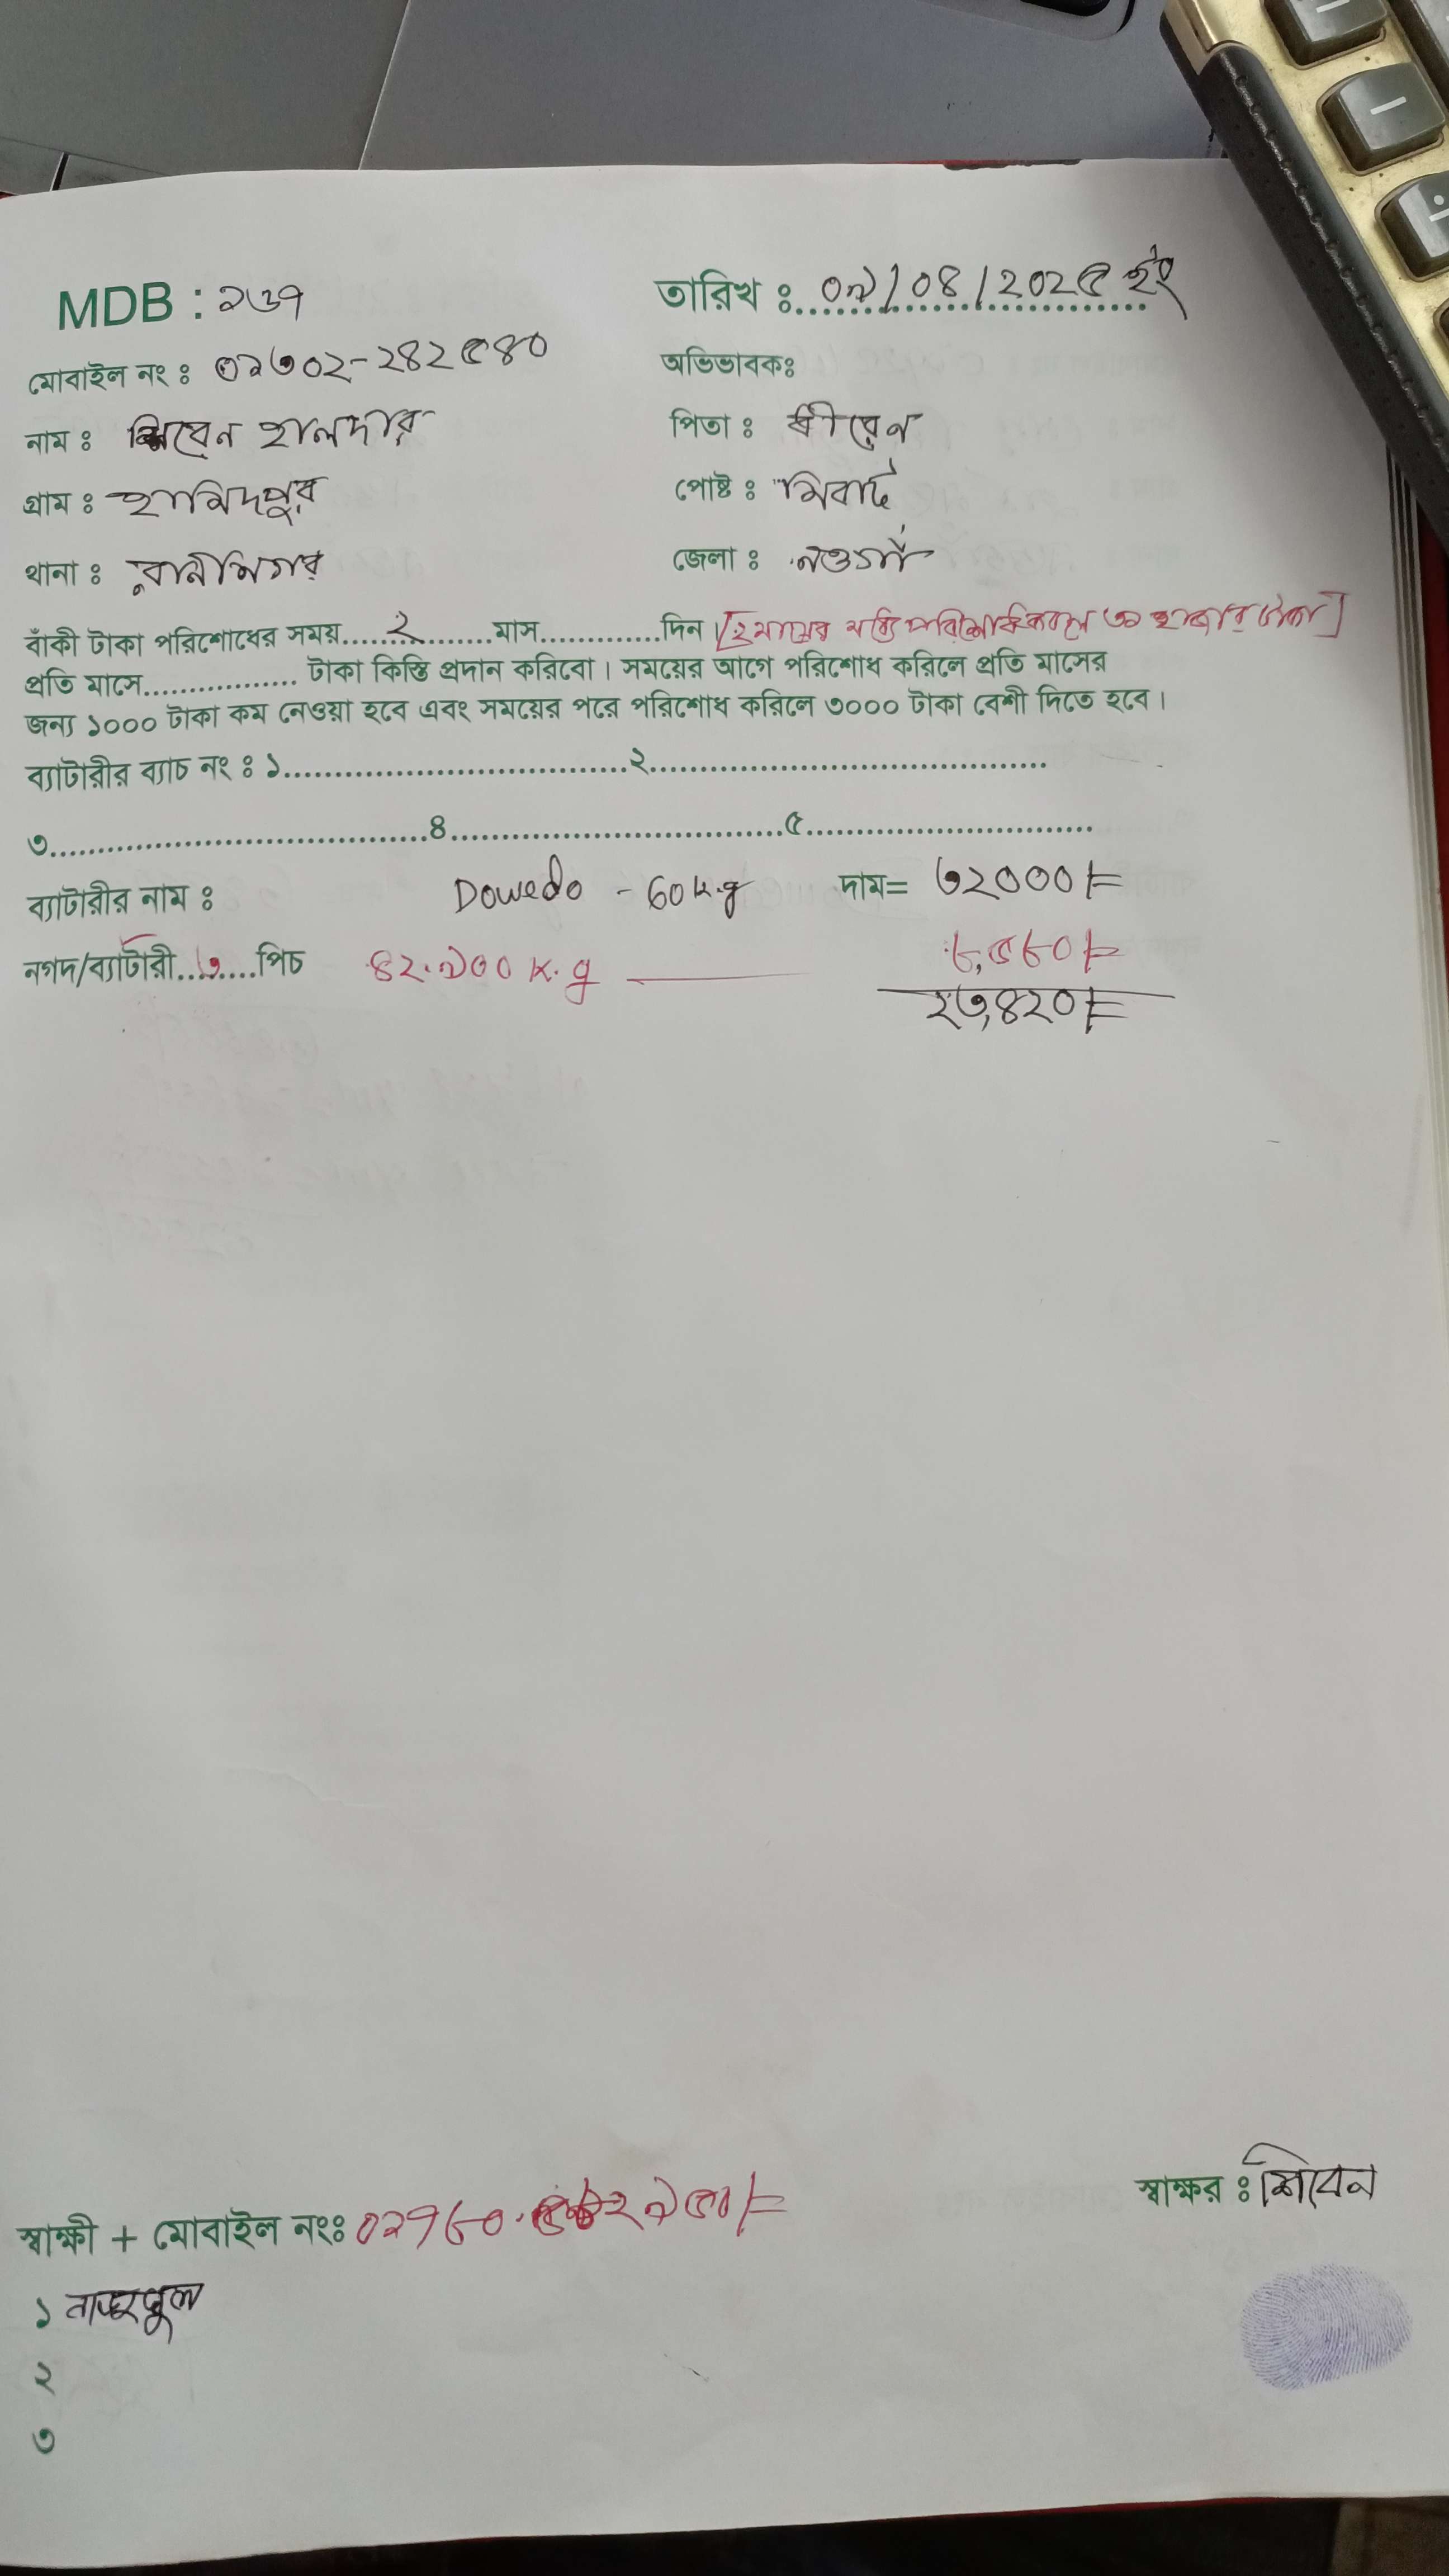 MDB : ১৩৭
তারিখ : ০৯/০৪/২০২৫ ইং
মোবাইল নং : ০১৩০২-২৪২৫৪০
অভিভাবকঃ
নাম : শিবেন হালদার
পিতা : ধীরেন
গ্রাম : হামিদপুর
পোষ্ট : মিরাট
থানা : রানীনগর
জেলা : নওগাঁ
বাঁকী টাকা পরিশোধের সময়.....২........মাস.............দিন। [২ মাসের মধ্যে পরিশোধ করলে ৩০ হাজার টাকা]
প্রতি মাসে................. টাকা কিস্তি প্রদান করিবো। সময়ের আগে পরিশোধ করিলে প্রতি মাসের
জন্য ১০০০ টাকা কম নেওয়া হবে এবং সময়ের পরে পরিশোধ করিলে ৩০০০ টাকা বেশী দিতে হবে।
ব্যাটারীর ব্যাচ নং : ১..................................২.......................................
৩.....................................৪................................৫............................
ব্যাটারীর নাম : Dowedo - 60 K.g দাম= ৩২০০০/=
নগদ/ব্যাটারী........পিচ ৪২.৯০০ K.g ৮,৫৮০/=
২৩,৪২০/=
স্বাক্ষর : শিবেন
স্বাক্ষী + মোবাইল নংঃ
১
২
৩